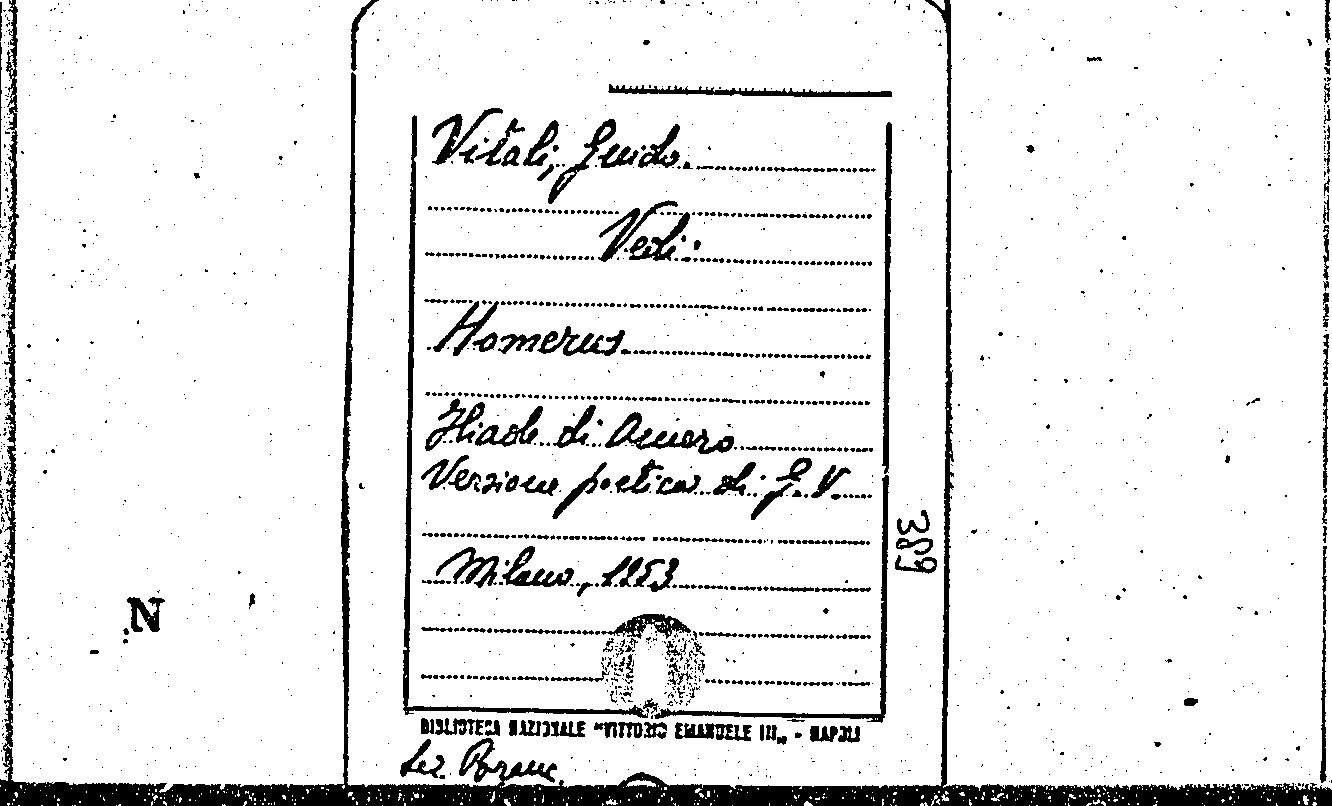 Vitali, Guido.
Vedi:
Homerus.
Iliade di Omero
Versione poetica di G. V.
Milano, 1953
389
N
BIBLIOTECA NAZIONALE "VITTORIO EMANUELE III„ - NAPOLI
Sez.